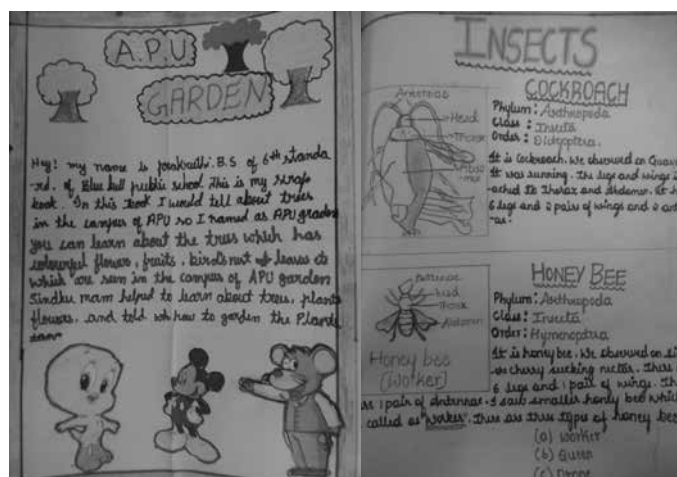 A.P.U
GARDEN
Hey! my name is B.S of 6th standa
-rd. of Blue bell public school This is my scrap
book. In this book I would tell about trees
in the campus of APU so I named as APU garden
you can learn about the trees which has
colourful flowers, fruits, bird's nest leaves etc
which are seen in the campus of APU garden
Sindhu mam helped to learn about trees, plants
flowers, and told us how to garden the Plants
INSECTS
COCKROACH
Antennae
Head
Thorax
Abdo
men
Phylum: Arthropoda
Class: Insecta
Order: Dictyoptera.
It is Cockroach. We observed on
It was running. The legs and wings
-ached to Thorax and Abdomen. It h
6 legs and 2 pairs of wings and 2 ant
-as.
HONEY BEE
Antennae
head
Thorax
Abdomen
Honey bee
(Worker)
Phylum: Arthropoda
Class: Insecta
Order: Hymenoptera
It is honey bee. We observed on
cherry sucking nectar. There
6 legs and 1 pair of wings. Th
1 pair of antennae. I saw smaller honey bee which
called as "Worker". There are three types of honey bee
(a) Worker
(b) Queen
(c) Drone